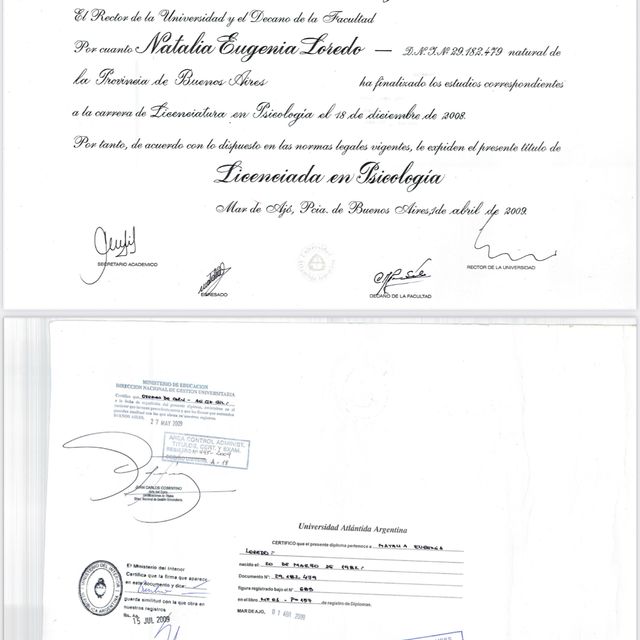 El Rector de la Universidad y el Decano de la Facultad
Por cuanto Natalia Eugenia Loredo — D.N.I.Nº 29.182.479 natural de
la Provincia de Buenos Aires ha finalizado los estudios correspondientes
a la carrera de Licenciatura en Psicología el 18 de diciembre de 2008.
Por tanto, de acuerdo con lo dispuesto en las normas legales vigentes, le expiden el presente título de
Licenciada en Psicología
Mar de Ajó, Pcia. de Buenos Aires, de abril de 2009
SECRETARIO ACADEMICO
EGRESADO
DECANO DE LA FACULTAD
RECTOR DE LA UNIVERSIDAD
MINISTERIO DE EDUCACION
DIRECCION NACIONAL DE GESTION UNIVERSITARIA
BUENOS AIRES,
27 MAY 2009
AREA CONTROL ADMINIST.
TITULOS, CERT. Y EXAM.
JUAN CARLOS COSENTINO
Universidad Atlántida Argentina
CERTIFICO que el presente diploma pertenece a NATALIA EUGENIA
LOREDO
nacido el 20 DE MARZO DE
Documento Nº 29.182.479
figura registrado bajo el Nº 689
en el libro de registro de Diplomas.
MAR DE AJO, 01 ABR 2009
El Ministerio del Interior
Certifica que la firma que aparece
en este documento y dice
guarda similitud con la que obra en
nuestros registros
Bs. As. 15 JUL 2009